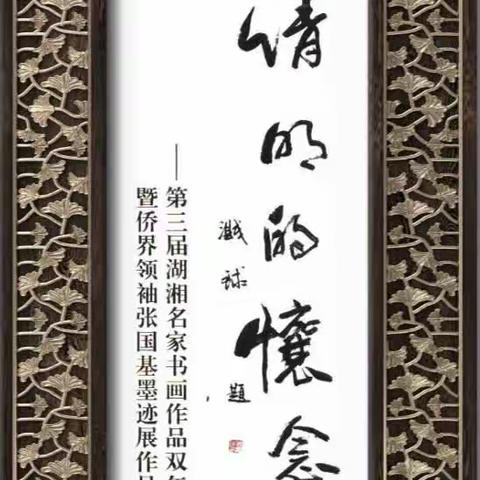 清明的懷念
溅球題
——第三届湖湘名家书画作品双年
暨侨界领袖张国基墨迹展作品